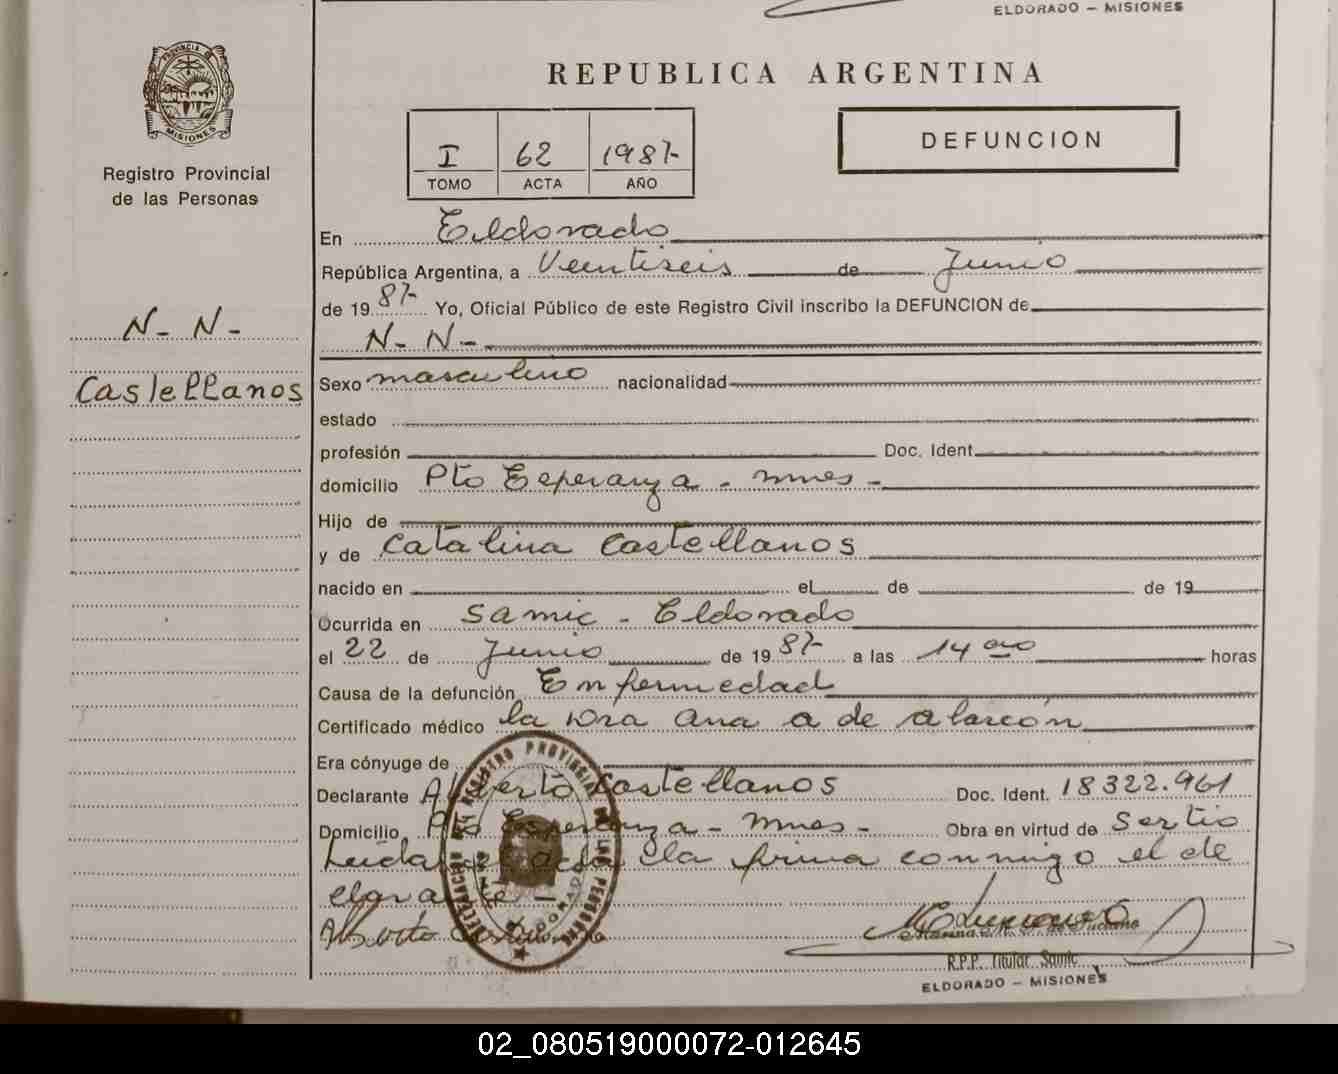 ELDORADO — MISIONES
PROVINCIA DE
MISIONES
Registro Provincial
de las Personas
REPUBLICA ARGENTINA
I 62 1987-
TOMO ACTA AÑO
DEFUNCION
N- N-
Castellanos
En Eldorado
República Argentina, a Veentiseis de Junio
de 1987- Yo, Oficial Público de este Registro Civil inscribo la DEFUNCION de
N- N-
Sexo masculino nacionalidad
estado
profesión Doc. Ident.
domicilio Pto Esperanza - mnes -
Hijo de
y de Catalina Castellanos
nacido en el de de 19
Ocurrida en Samic - Eldorado
el 22 de Junio de 1987- a las 14 ooo horas
Causa de la defunción Enfermedad
Certificado médico la Dra Ana a de alarcón
Era cónyuge de
Declarante Alberto Castellanos Doc. Ident. 18322.961
Domicilio Pto Esperanza - mnes - Obra en virtud de Sertio
Leída el acta la firma conmigo el de
clarante -
Alberto Castellanos
R.P.P. Titular Samic
ELDORADO — MISIONES
02_080519000072-012645